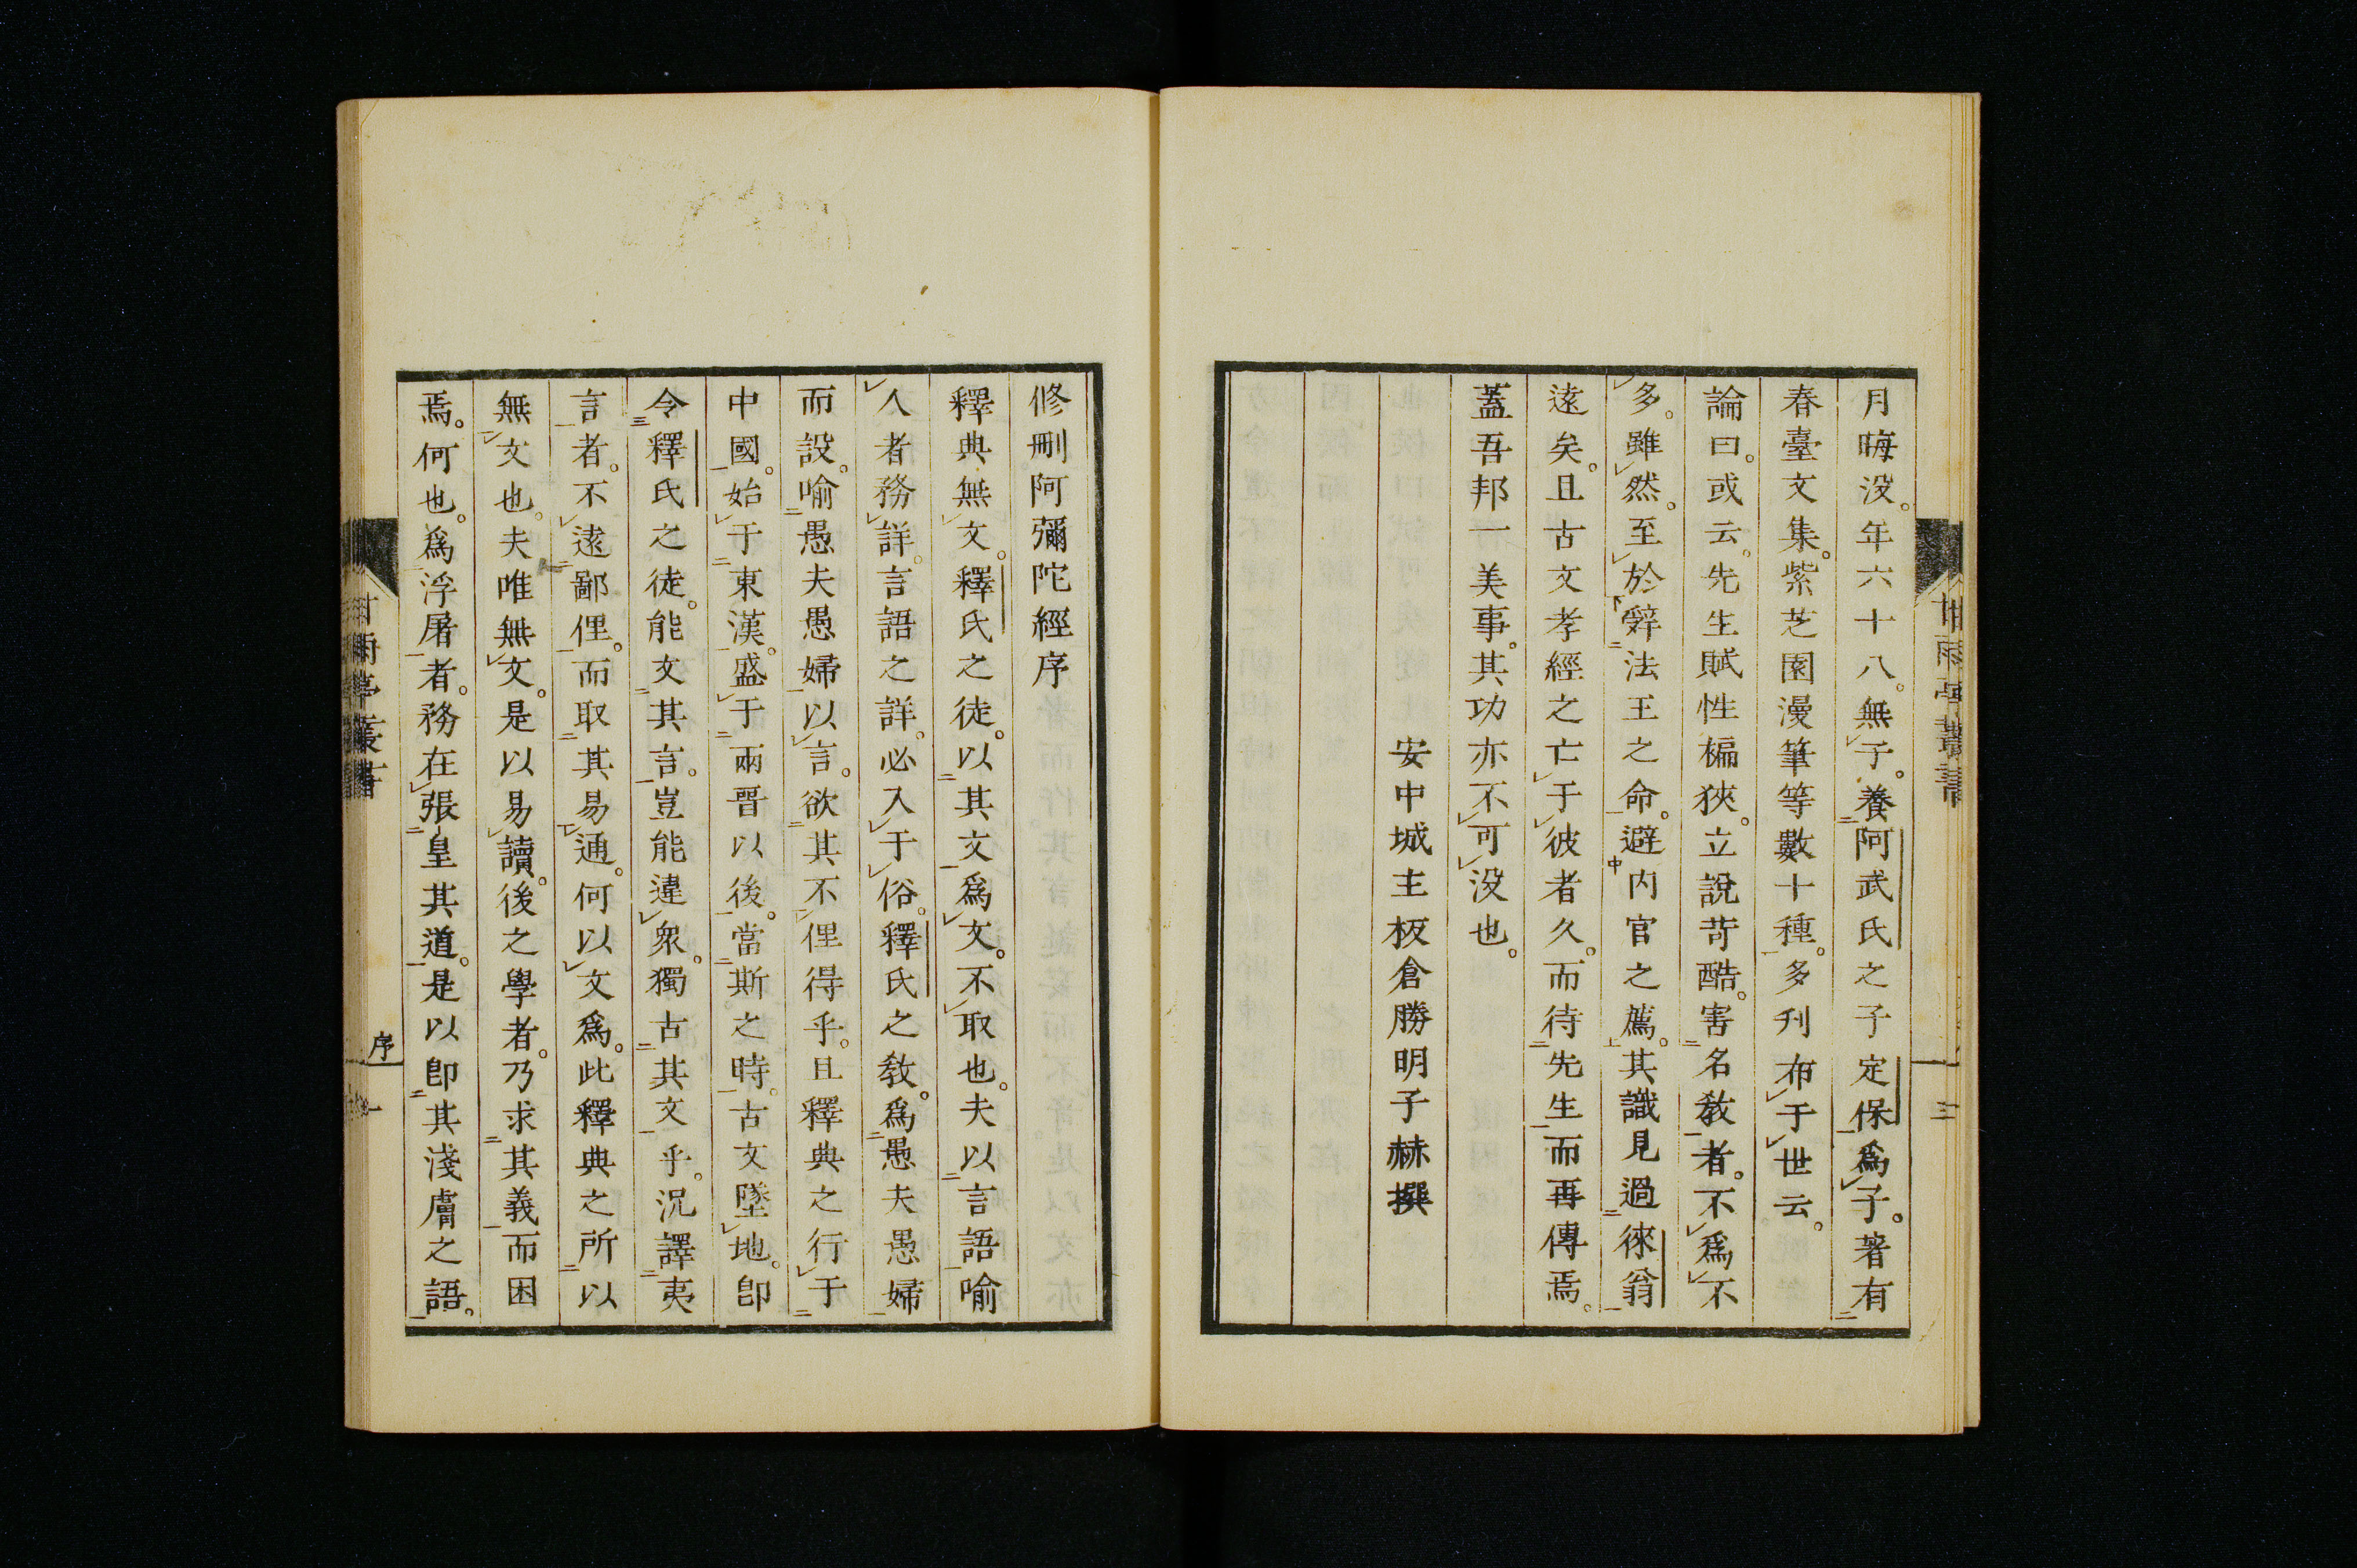 月晦没。年六十八。無子。養阿武氏之子定保爲子。著有
春臺文集。紫芝園漫筆等數十種。多刋布于世云。
論曰。或云。先生賦性褊狹。立說苛酷。害名敎者。不爲不
多。雖然。至於辤法王之命。避内官之薦。其識見過徠翁
遠矣。且古文孝經之亡于彼者久。而待先生而再傳焉。
蓋吾邦一美事。其功亦不可没也。
安中城主板倉勝明子赫撰
修刪阿彌陀經序
釋典無文。釋氏之徒。以其文爲文。不取也。夫以言語喻
人者務詳。言語之詳。必入于俗。釋氏之敎。爲愚夫愚婦
而設。喻愚夫愚婦以言。欲其不俚得乎。且釋典之行于
中國。始于東漢。盛于兩晋以後。當斯之時。古文墜地。卽
令釋氏之徒。能文其言。豈能違衆。獨古其文乎。況譯夷
言者。不遠鄙俚。而取其易通。何以文爲。此釋典之所以
無文也。夫唯無文。是以易讀。後之學者。乃求其義而困
焉。何也。爲浮屠者。務在張皇其道。是以卽其淺膚之語。
甘雨亭叢書
序
一
甘雨亭叢書
三